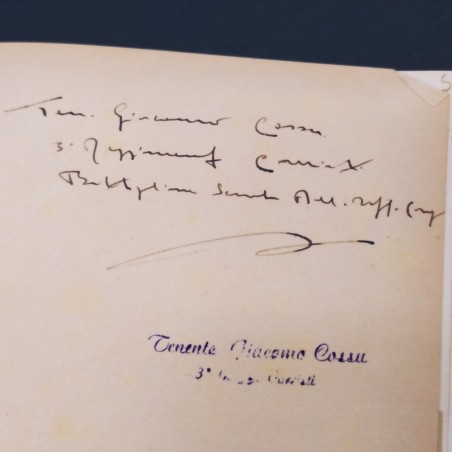 Ten. Giacomo Cossu
3° Reggimento Carristi
Battaglione Scuola All. Uff. Cpl
Tenente Giacomo Cossu
3° Carristi